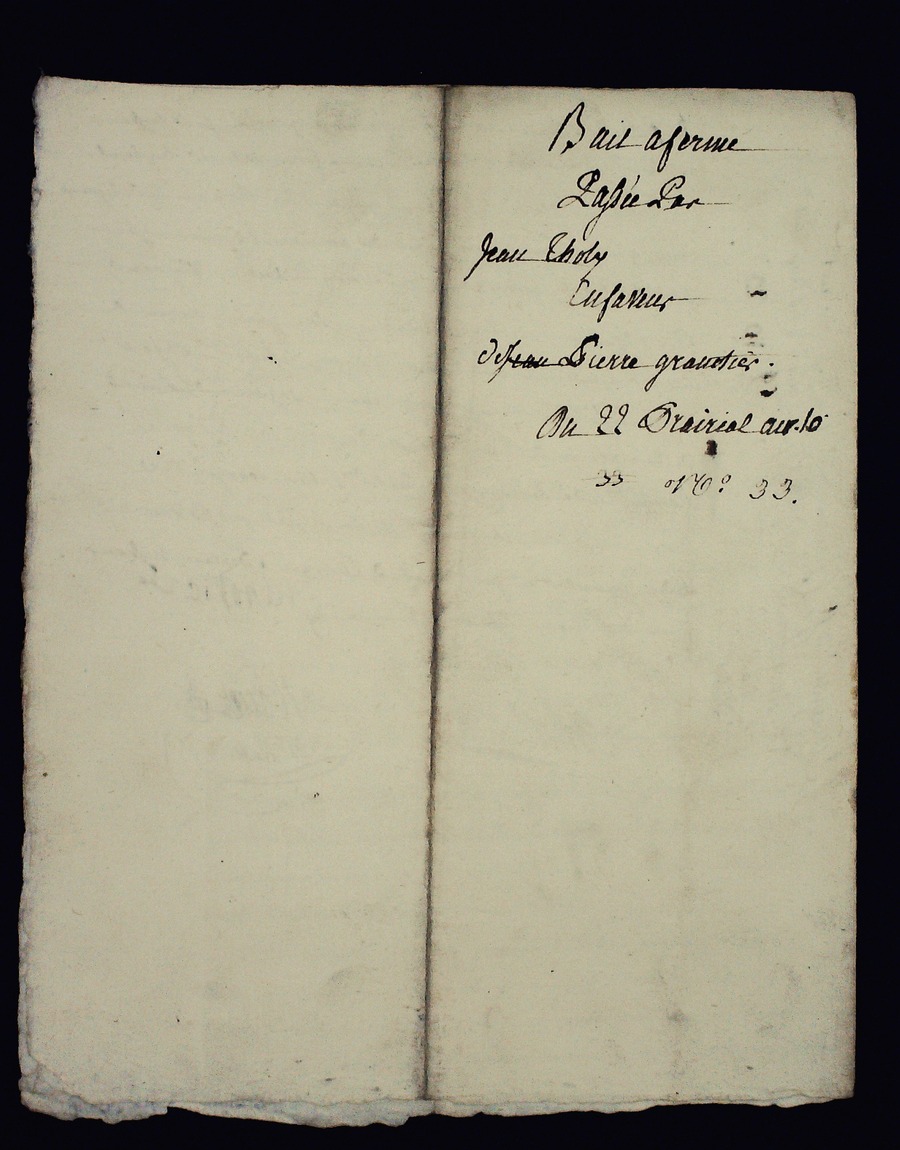 Bail aferme
Passée Par
Jean Tholy
Enfaveur
de Jean Pierre granctier.
Du 22 Prairial an 10
33 No 33.